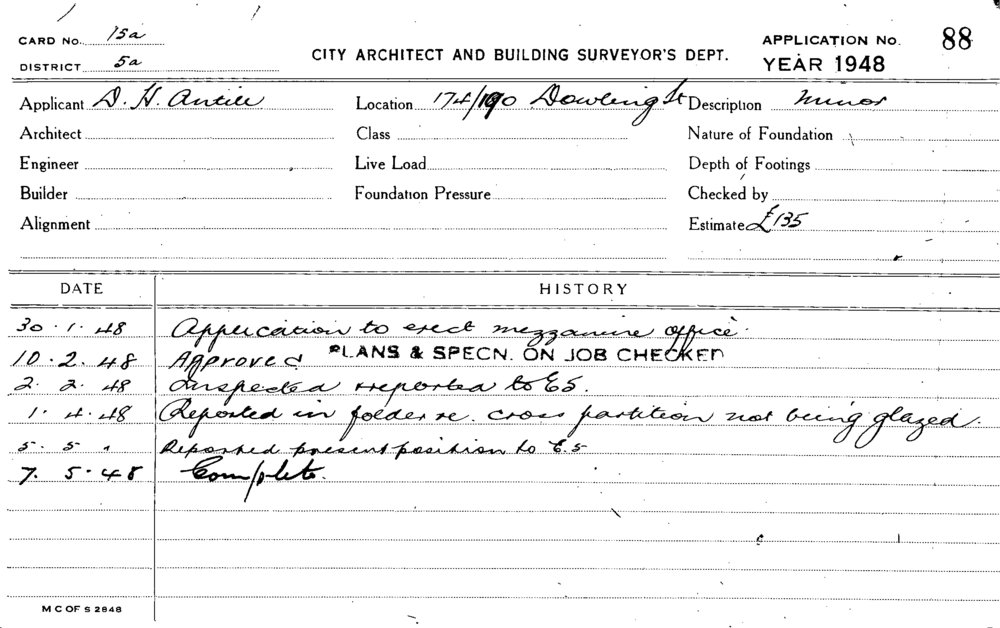 CARD No. 15a
DISTRICT 5a
CITY ARCHITECT AND BUILDING SURVEYOR'S DEPT.
APPLICATION No. 88
YEAR 1948
Applicant D. H. Antill Location 174/190 Dowling St Description Minor
Architect Class Nature of Foundation
Engineer Live Load Depth of Footings
Builder Foundation Pressure Checked by
Alignment Estimate £135
DATE HISTORY
30.1.48 Application to erect mezzanine office.
10.2.48 Approved PLANS & SPECN. ON JOB CHECKED
2.2.48 Inspected & reported to E5.
1.4.48 Reported in folder re. cross partition not being glazed.
5.5 " Reported present position to E.5
7.5.48 Complete.
M C OF S 2848